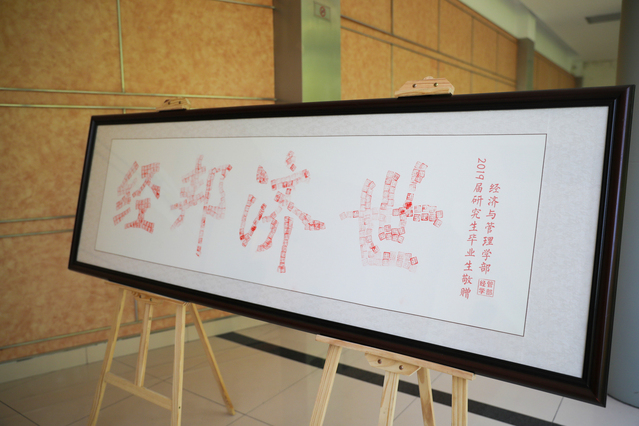 经邦济世
经济与管理学部
2019届研究生毕业生敬赠